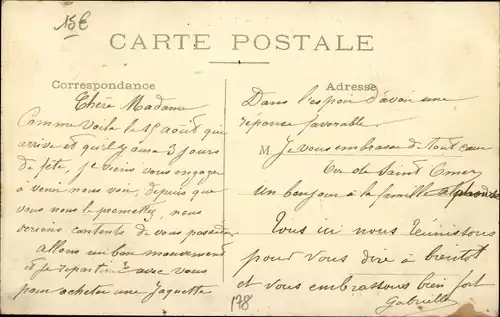 15€
CARTE POSTALE
Correspondance
Chère Madame
Comme voila le 15 août qui
arrive et qu'il y aura 3 jours
de fête, je viens vous engager
a venir nous voir, depuis que
vous nous le promettez, nous
serions contents de vous posséder
allons un bon mouvement
et je repartirai avec vous
pour acheter une Jaquette
Adresse
Dans l'espoir d'avoir une
réponse favorable
M Je vous embrasse de tout cœur
de Saint Omer
un bonjour à la famille
Tous ici nous réunissons
pour vous dire à bientôt
et vous embrassons bien fort
Gabrielle
178